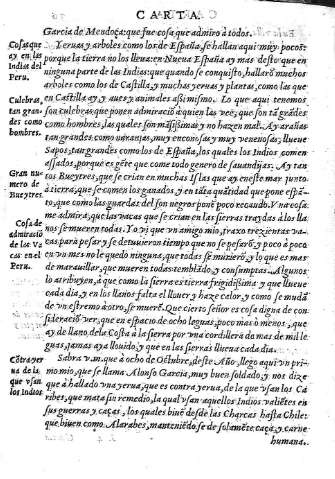 CARTA
Garcia de Mendoça: que fue cosa que admiro à todos.
Yeruas y arboles como los de España, se hallan aqui muy pocos:
porque la tierra no los lleua: en Nueua España ay mas desto que en
ninguna parte de las Indias: que quando se conquisto, hallarõ muchos
arboles como los de Castilla, y muchas yeruas y plantas, como las que
en Castilla ay, y aues y animales assimismo. Lo que aqui tenemos
son culebras, que ponen admiraciõ à quien las vee, que son tã grãdes
como hombres, las quales son mãssisima y no hazen mal. Ay arañas
tan grandes como naranjas, muy enconosas y muy venenosas; llueue
Sapos, tan grandes como los de España, los quales los Indios comen
assados, porque es gẽte que come todo genero de sauandijas. Ay tan
tos Bueytres, que se crian en muchas Islas que ay en este mar junto
à tierra, que se comen los ganados, y en tãta quãtidad que pone espã
to, que como las guardas del son negros ponẽ poco recaudo. Vna cosa
me admira, que las vacas que se crian en las sierras traydas à los lla
nos se mueren todas. Yo vi que vn amigo mio, traxo trezientas va
cas para pesar y se detuuieron tiempo que no se pesarõ, y poco à poco
en vn mes no le quedo ninguna, que todas se muriẽrõ, y lo que es mas
de marauillar, que mueren todas temblãdo, y consumptas. Algunos
lo atribuyen, à que como la sierra es tierra frigidissima y que llueue
cada dia, y en los llanos falta el llouer y haze calor, y como se mudã
de vn estremo à otro, se muerẽ. Que cierto señor es cosa digna de con
sideraciõ ver, que en espacio de ocho leguas, poco mas ò menos, que
ay de llano, dela Costa à la sierra por vna cordillera de mas de mil le
guas, jamas aya llouido, y que en las sierras llueua cada dia.
Sabra v. m. que à ocho de Octubre, deste Año, llego aqui vn pri
mo mio, que se llama Alonso Garcia, muy buen soldado, y nos dize
que à hallado vna yerua, que es contra yerua, de la que vsan los Cà
ribes, que mata sin remedio, la qual vsan aquellos Indios valiẽtes en
sus guerras y caças, los quales biuẽ desde las Charcas hasta Chile:
que biuen como Alarabes, mantenidõ se de solamẽte caça, y carne
humana.
Cosas que
ay en las
Indias del
Peru.
Culebras,
tan gran-
des como
hombres.
Gran nu
mero de
Bueytres.
Cosa de
admiraciõ
de las Va
cas en el
Peru.
Cõtra yer
ua de la
que vsan
los Indios